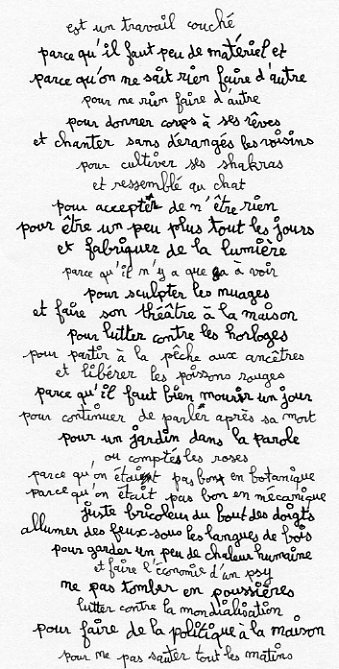 est un travail couché
parce qu'il faut peu de matériel et
parce qu'on ne sait rien faire d'autre
pour ne rien faire d'autre
pour donner corps à ses rêves
et chanter sans dérangés les voisins
pour cultiver ses shakras
et ressemblé au chat
pour accepter de n'être rien
pour être un peu plus tout les jours
et fabriquer de la lumière
parce qu'il n'y a que ça à voir
pour sculpter les nuages
et faire son théâtre à la maison
pour lutter contre les horloges
pour partir à la pêche aux ancêtres
et libérer les poissons rouges
parce qu'il faut bien mourir un jour
pour continuer de parler après sa mort
pour un jardin dans la parole
ou comptés les roses
parce qu'on était pas bon en botanique
parce qu'on était pas bon en mécanique
juste bricoleur du bout des doigts
allumer des feux sous les langues de bois
pour garder un peu de chaleur humaine
et faire l'économie d'un psy
ne pas tomber en poussières
lutter contre la mondialisation
pour faire de la politique à la maison
pour ne pas sauter tout les matins